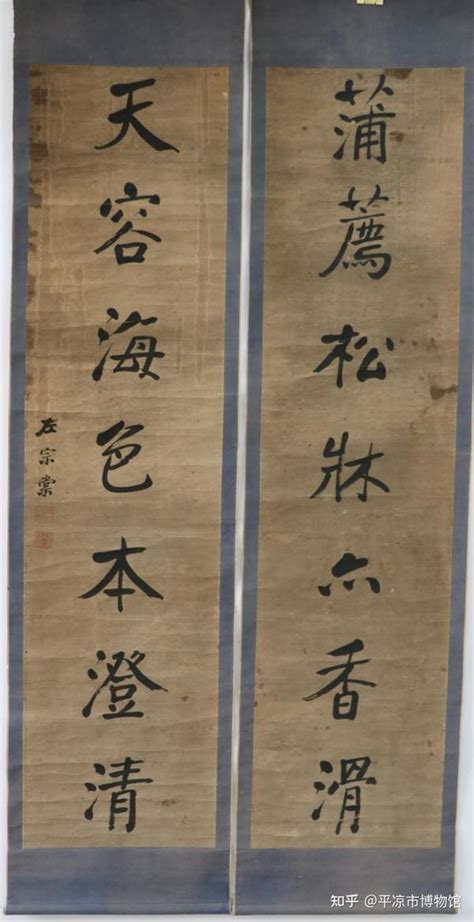 蒲薦松牀亦香滑
天容海色本澄清
左宗棠
知乎 @平凉市博物馆